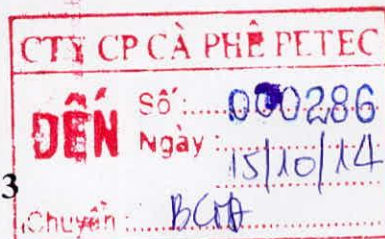 CTY CP CÀ PHÊ PETEC
ĐẾN
Số: 000286
Ngày: 15/10/14
3
Chuyển: